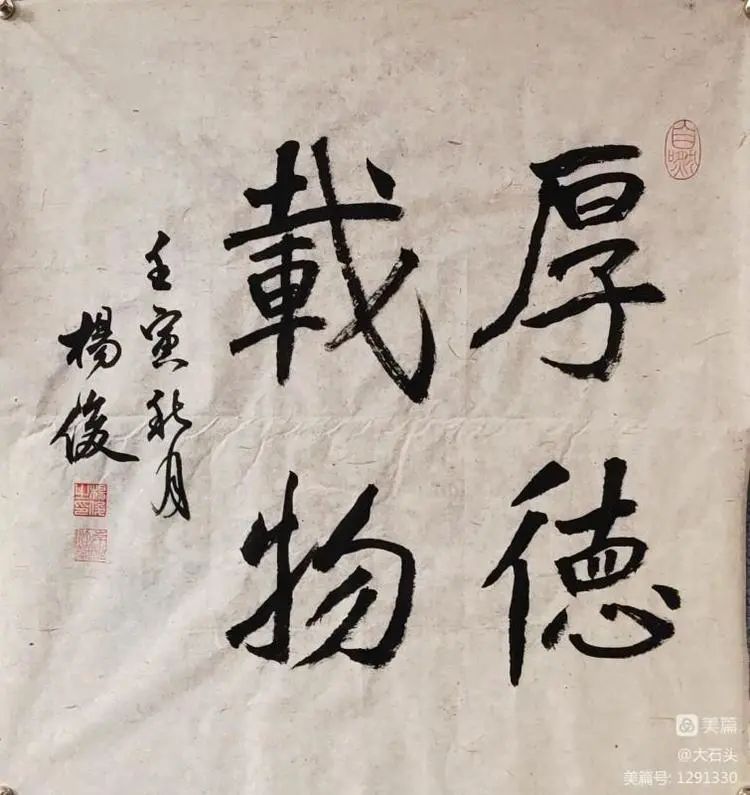 厚德
載物
壬寅秋月
楊俊
自然
美篇
@大石头
美篇号: 1291330